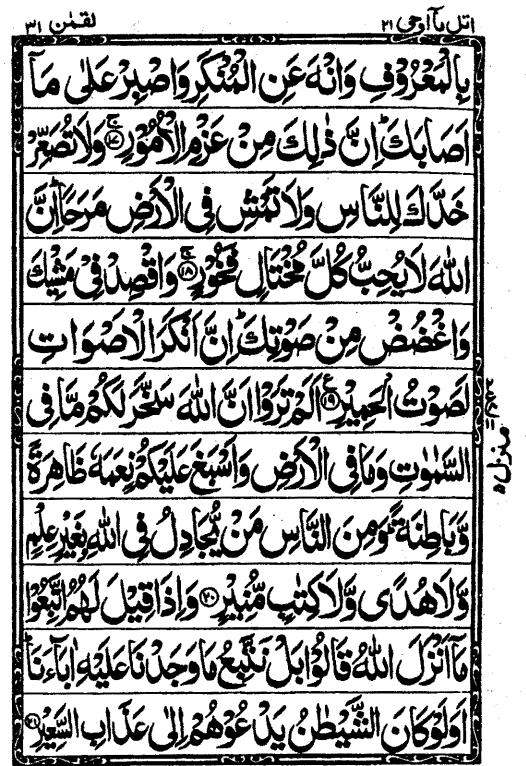 اتل مآ اوحی ۲۱
لقمٰن ۳۱
بِالْمَعْرُوْفِ وَانْهَ عَنِ الْمُنْكَرِ وَاصْبِرْ عَلٰى مَآ
اَصَابَكَ ؕ اِنَّ ذٰلِكَ مِنْ عَزْمِ الْاُمُوْرِ ۚ‏﴿۱۷﴾ وَلَا تُصَعِّرْ
خَدَّكَ لِلنَّاسِ وَلَا تَمْشِ فِى الْاَرْضِ مَرَحًا ؕ اِنَّ
اللّٰهَ لَا يُحِبُّ كُلَّ مُخْتَالٍ فَخُوْرٍ ۚ‏﴿۱۸﴾ وَاقْصِدْ فِىْ مَشْيِكَ
وَاغْضُضْ مِنْ صَوْتِكَ ؕ اِنَّ اَنْكَرَ الْاَصْوَاتِ
لَصَوْتُ الْحَمِيْرِ ‏﴿۱۹﴾ ع اَلَمْ تَرَوْا اَنَّ اللّٰهَ سَخَّرَ لَكُمْ مَّا فِى
السَّمٰوٰتِ وَمَا فِى الْاَرْضِ وَاَسْبَغَ عَلَيْكُمْ نِعَمَهٗ ظَاهِرَةً
وَّبَاطِنَةً ؕ وَمِنَ النَّاسِ مَنْ يُّجَادِلُ فِى اللّٰهِ بِغَيْرِ عِلْمٍ
وَّلَا هُدًى وَّلَا كِتٰبٍ مُّنِيْرٍ ‏﴿۲۰﴾ وَاِذَا قِيْلَ لَهُمُ اتَّبِعُوْا
مَآ اَنْزَلَ اللّٰهُ قَالُوْا بَلْ نَتَّبِعُ مَا وَجَدْنَا عَلَيْهِ اٰبَآءَنَا ؕ
اَوَلَوْ كَانَ الشَّيْطٰنُ يَدْعُوْهُمْ اِلٰى عَذَابِ السَّعِيْرِ ‏﴿۲۱﴾
منزل ۵